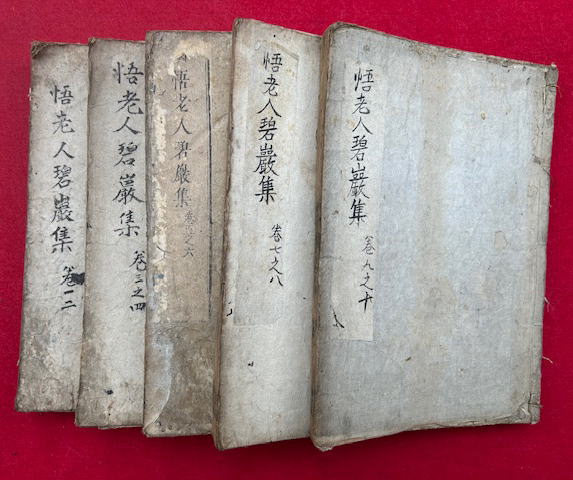 悟老人碧巖集
卷九之十
悟老人碧巖集
卷七之八
悟老人碧巖集
卷之六
悟老人碧巖集
卷三之四
悟老人碧巖集
卷一二